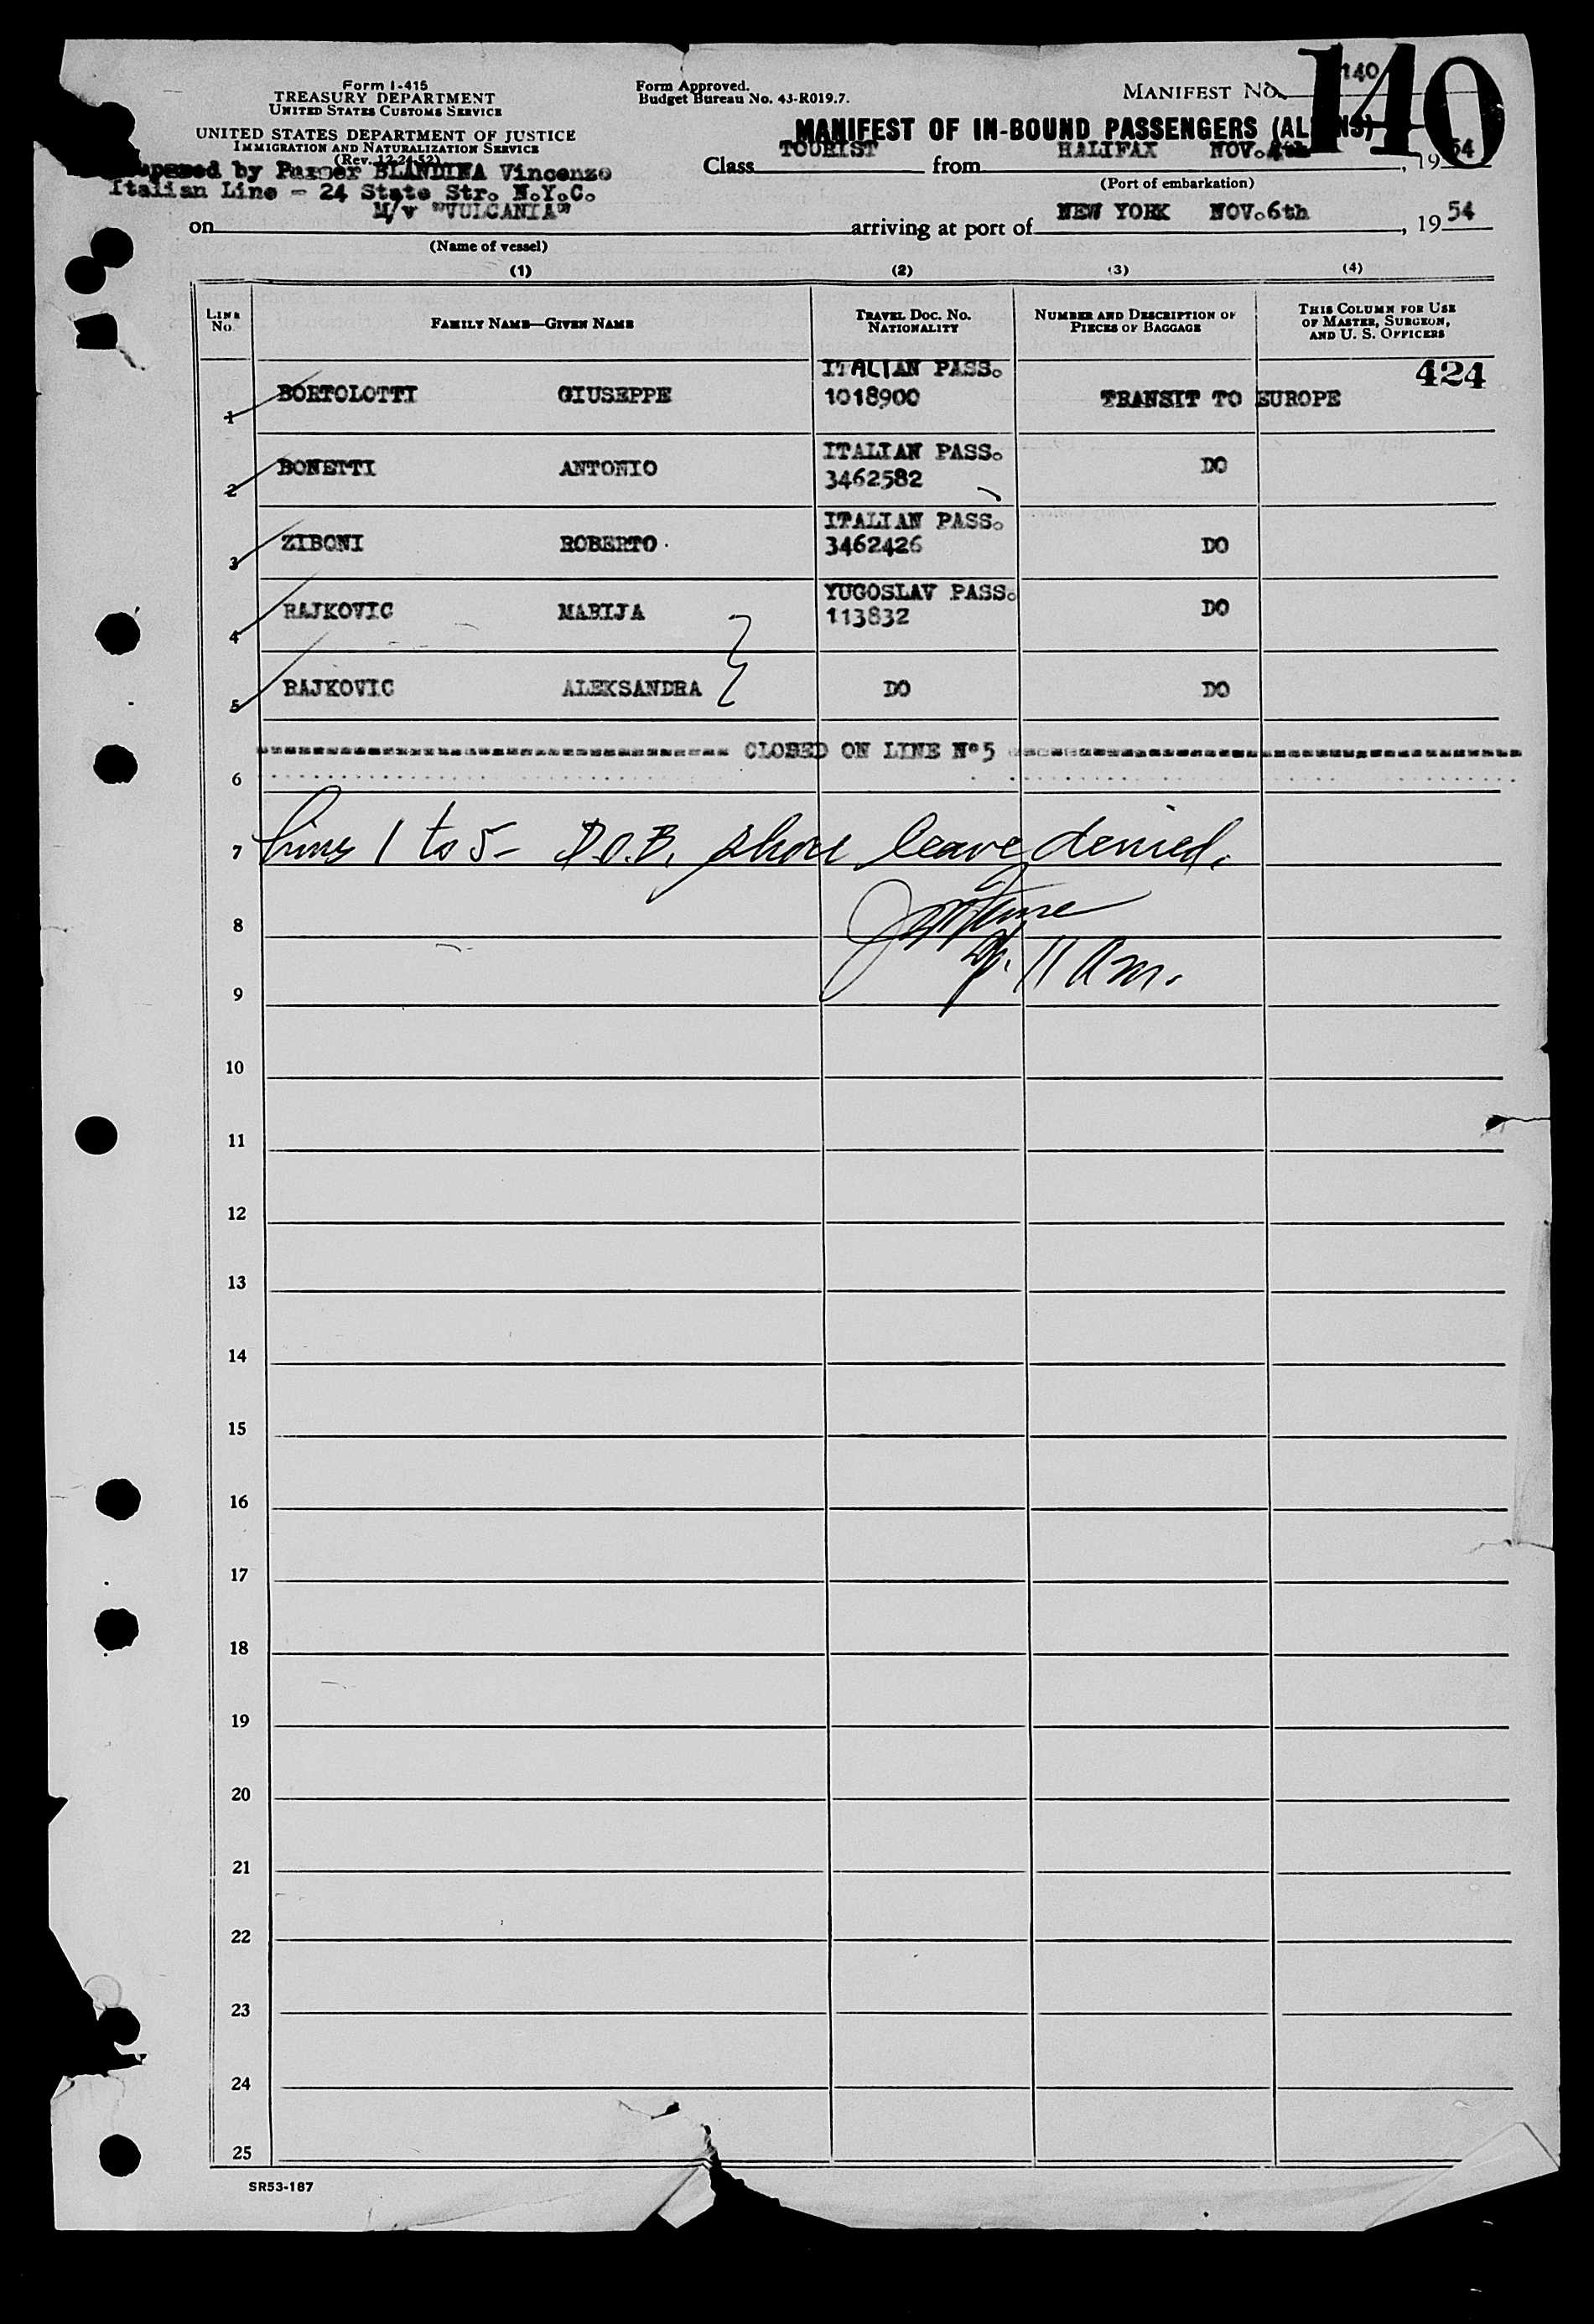 Form I-415
TREASURY DEPARTMENT
UNITED STATES CUSTOMS SERVICE
UNITED STATES DEPARTMENT OF JUSTICE
IMMIGRATION AND NATURALIZATION SERVICE
(Rev. 12-24-52)
Form Approved.
Budget Bureau No. 43-R019.7.
MANIFEST NO. 140
140
MANIFEST OF IN-BOUND PASSENGERS (ALIENS)
by Purser BLANDINA Vincenzo
Italian Line - 24 State Str. N.Y.C.
Class TOURIST from HALIFAX NOV. 4th, 1954
(Port of embarkation)
on M/v "VULCANIA" arriving at port of NEW YORK NOV.6th, 1954
(Name of vessel)
(1) (2) (3) (4)
LINE No. FAMILY NAME—GIVEN NAME TRAVEL DOC. NO. NATIONALITY NUMBER AND DESCRIPTION OF PIECES OF BAGGAGE THIS COLUMN FOR USE OF MASTER, SURGEON, AND U. S. OFFICERS
424
1 BORTOLOTTI GIUSEPPE ITALIAN PASS. 1018900 TRANSIT TO EUROPE
2 BONETTI ANTONIO ITALIAN PASS. 3462582 DO
3 ZIBONI ROBERTO ITALIAN PASS. 3462426 DO
4 RAJKOVIC MARIJA YUGOSLAV PASS. 113832 DO
5 RAJKOVIC ALEKSANDRA DO DO
CLOSED ON LINE Nº5
6
7 Lines 1 to 5- D.O.B. shore leave denied.
8
11 am.
9
10
11
12
13
14
15
16
17
18
19
20
21
22
23
24
25
SR53-187